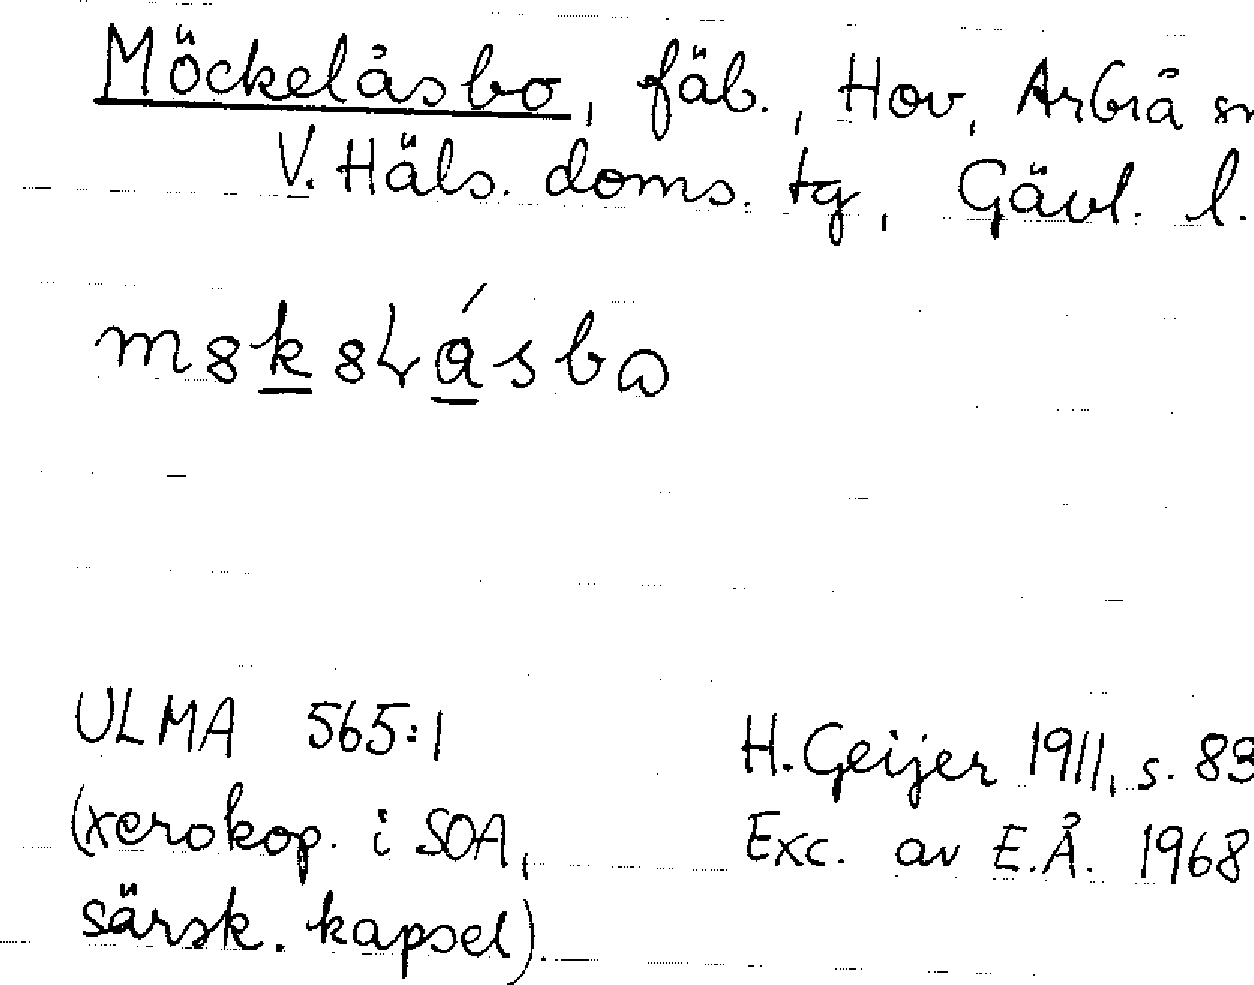 Möckelåsbo, fäb., Hov, Arbrå
V. Häls. doms. tg, Gävl. l.
ULMA 565:1
H. Geijer 1911, s. 83
(xerokop. i SOA,
Exc. av E.Å. 1968
särsk. kapsel).